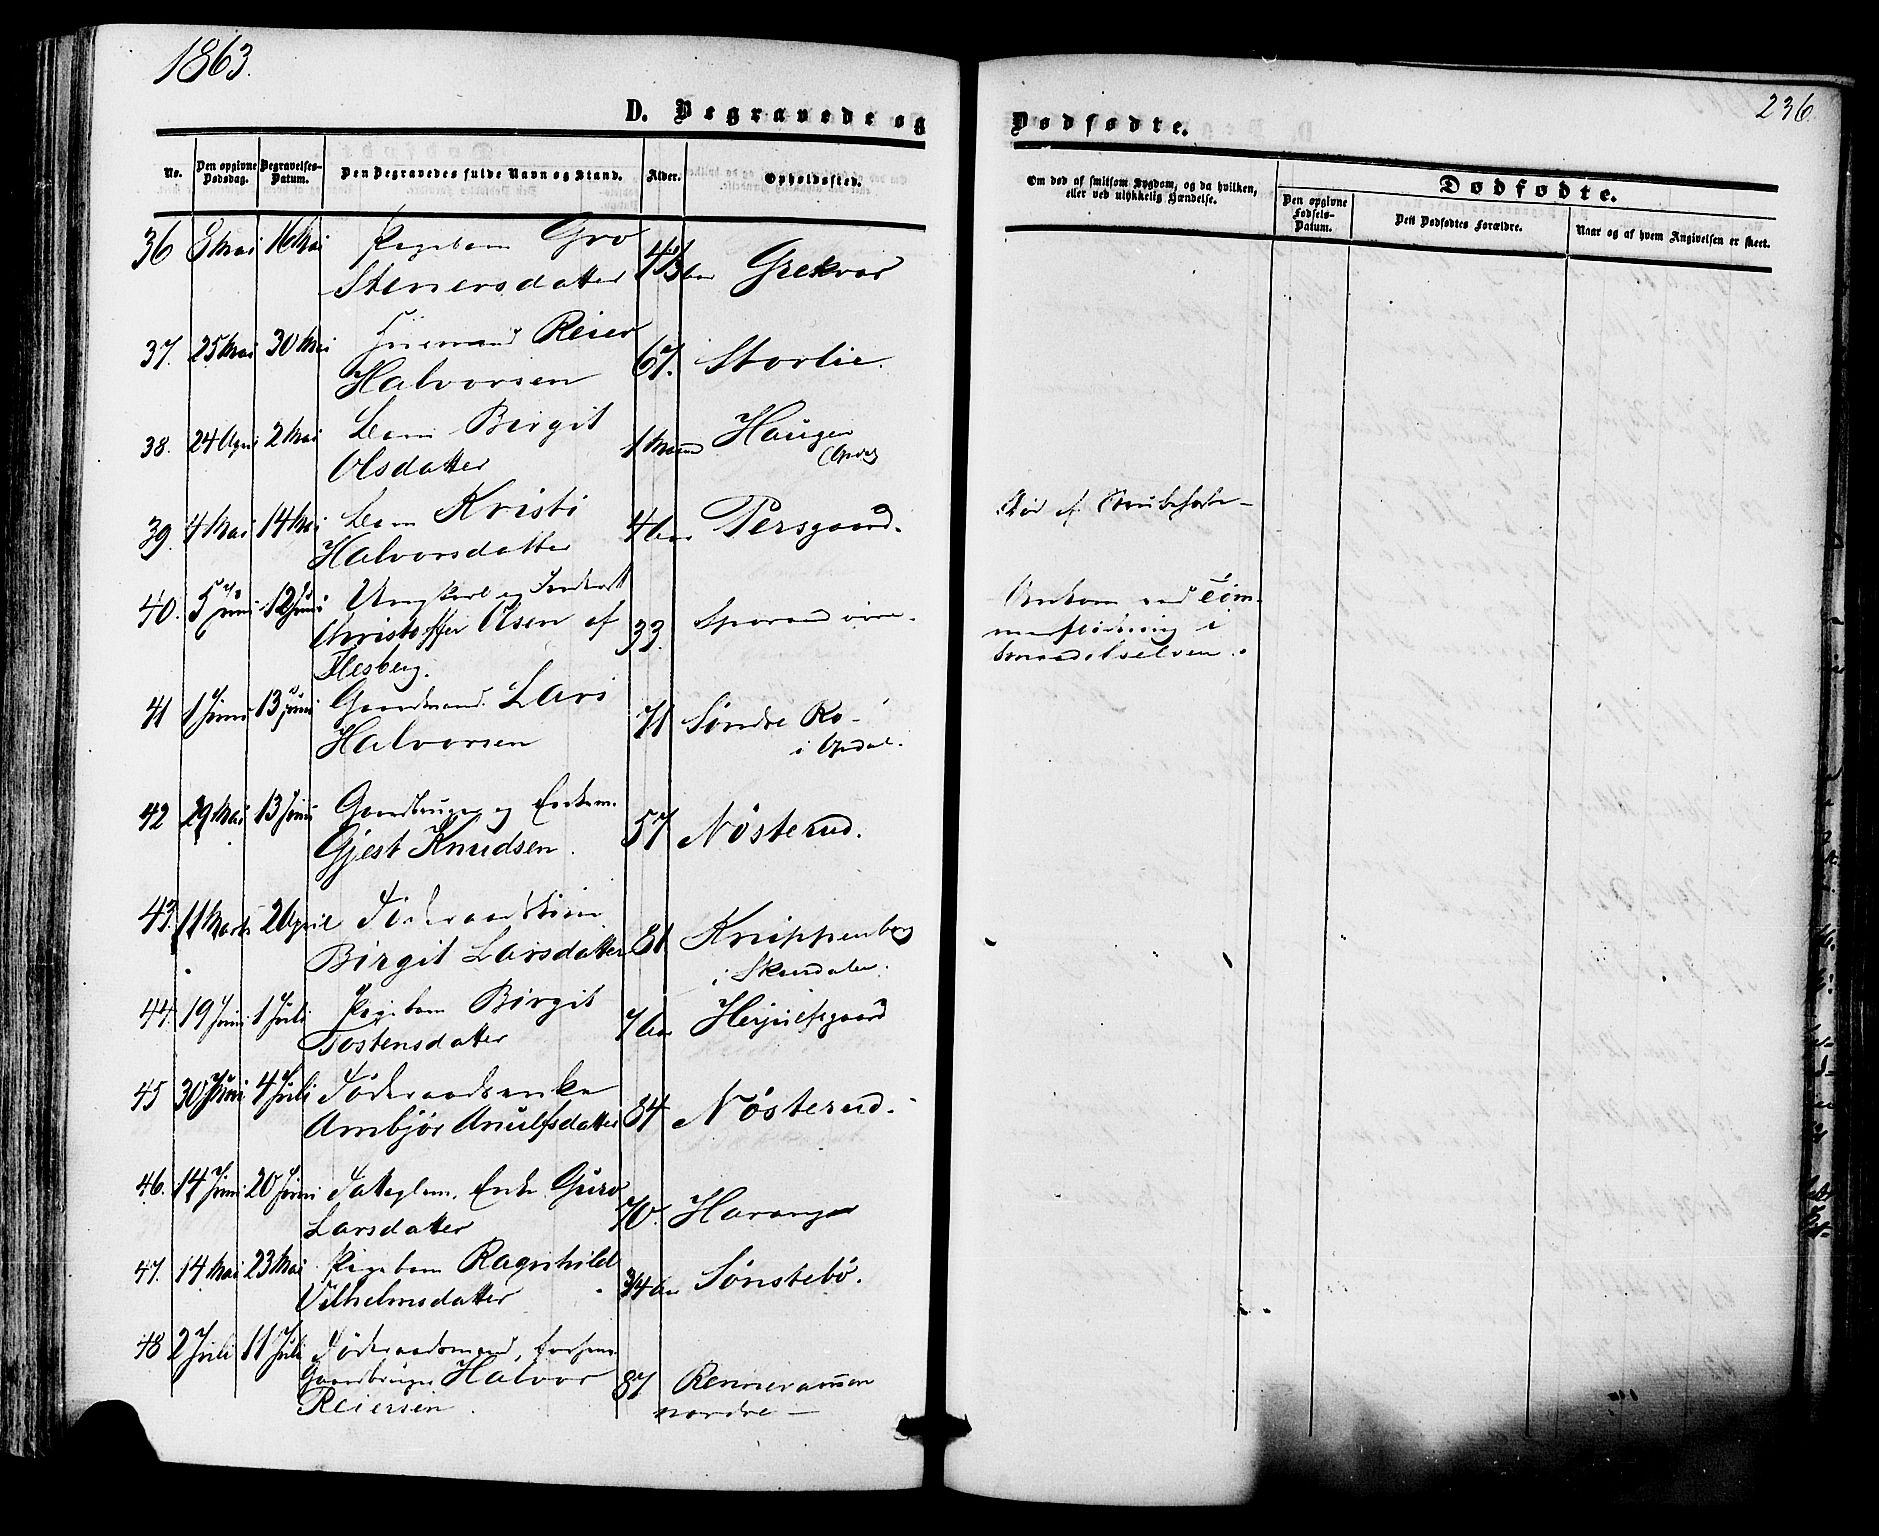 1863.
236.
D. Begravede og
Dødfødte.
No.
Den opgivne Dødsdag.
Begravelses-Datum.
Den Begravedes fulde Navn og Stand.
Alder.
Opholdssted.
Om død af smitsom Sygdom, og da hvilken,
eller ved ulykkelig Hændelse.
Dødfødte.
Den opgivne Fødsels-Datum.
Det Dødfødtes Forældre.
Naar og af hvem Angivelsen er skeet.
36 8 Mai 16 Mai Pigebarn Gro
Stenersdatter Grekvar
37. 25 Mai 30 Mai Huusmand Reier
Halvorsen 67. Storlie.
38. 24 April 2 Mai Barn Birgit
Olsdatter 1 Maaned Haugen
(Opdal)
39. 4 Mai 14 Mai Barn Kristi
Halvorsdatter Persgaard. Død af Strubehoste
40. 5 Juni 12 Juni Ungkarl og
Christoffer Olsen af 33. Omkom ved Tøm-
Flesberg. merflødning i
41 1 Juni 13 Juni Gaardmand Lars
Halvorsen 71 Søndre Ro
i Opdal.
42 29 Mai 13 Juni Gaardbruger og Enkem.
Gjest Knudsen. 57 Nøsterud.
43. 11 Marts 2 April
Birgit Larsdatter 81 Knippenberg
i Skurdalen.
44. 19 Juni 1 Juli Pigebarn Birgit
Tostensdatter Herjulfsgaard
45 30 Juni 4 Juli Føderaadsenke
Arnbjør Anulfsdatter 84 Nøsterud.
46. 14 Juni 20 Juni Fattiglem, Enke Guro
Larsdatter 70. Haranger
47. 14 Mai 23 Mai Pigebarn Ragnhild
Vilhelmsdatter Sønstebø.
48 2 Juli 11 Juli Føderaadsmand, forhen
Gaardbruger Halvor
Reiersen. 87 Ramen
nordre